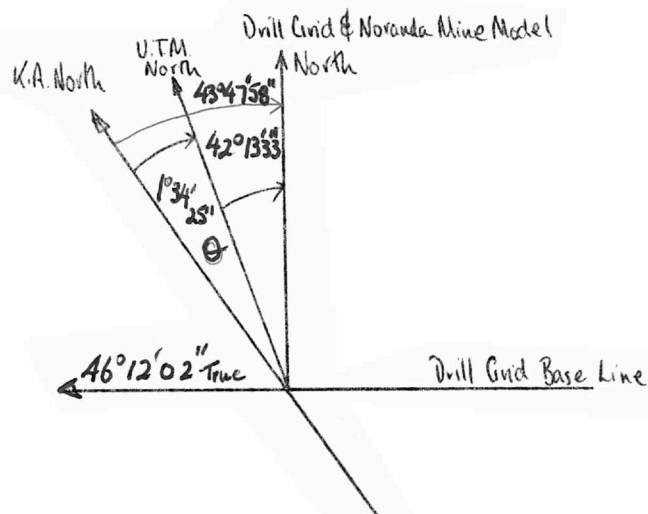 Drill Grid & Noranda Mine Model
North
U.T.M.
North
K.A. North
43°47'58"
42°13'33"
1°34'
25"
θ
46°12'02" True
Drill Grid Base Line